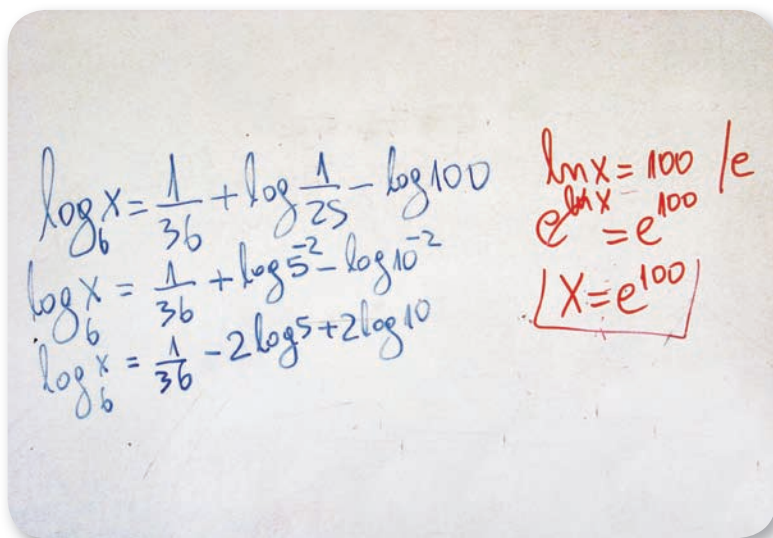 log₆x = 1/36 + log 1/25 - log100
log₆x = 1/36 + log5⁻² - log10⁻²
log₆x = 1/36 - 2log5 + 2log10
lnx = 100 /e
e^lnx = e^100
x = e^100